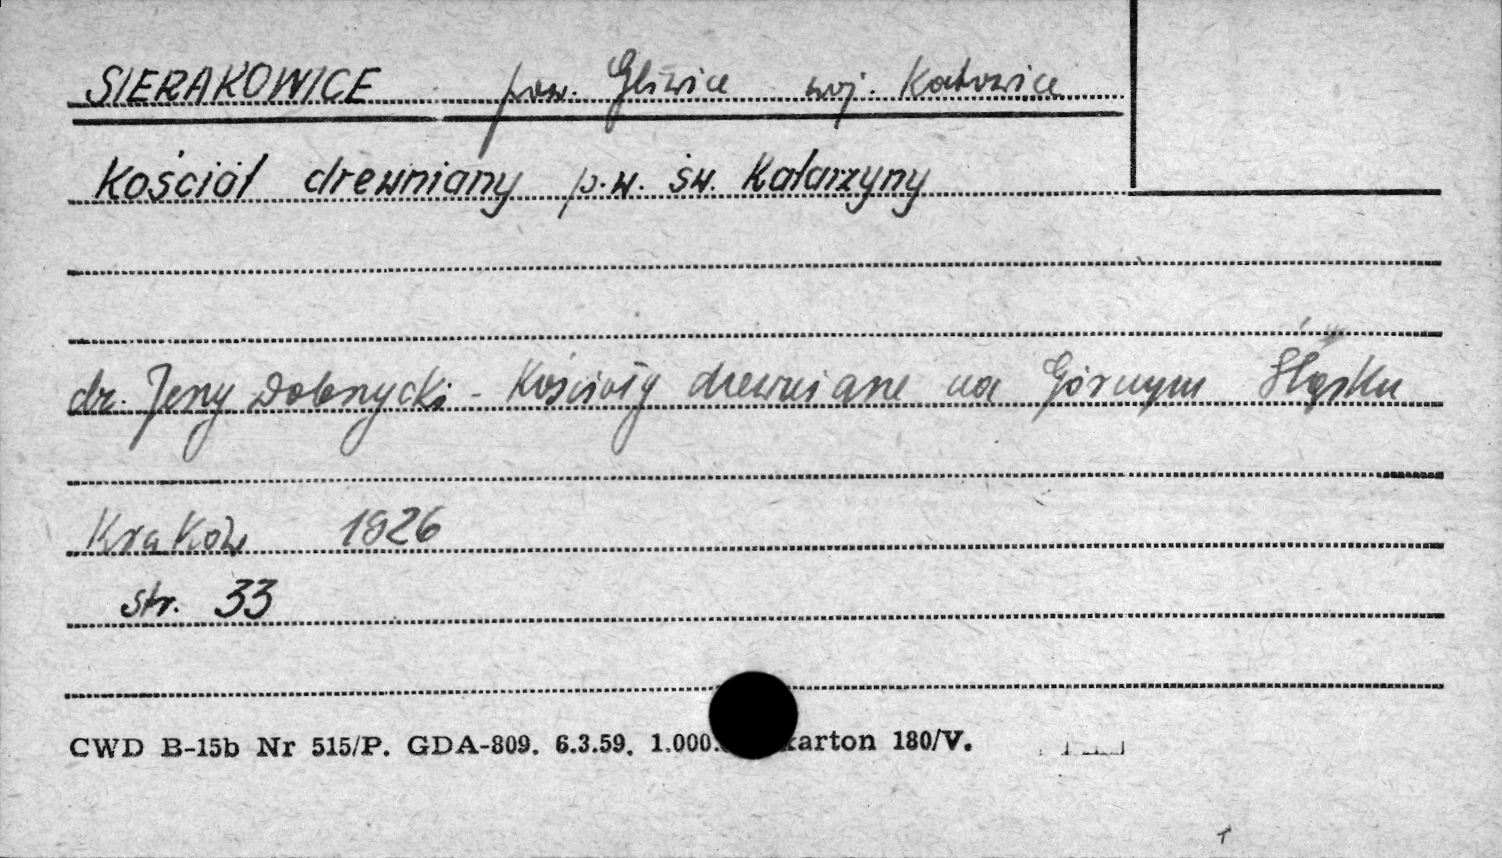 SIERAKOWICE pow. Gliwice woj. Katowice
Kościół drewniany p.w. św. Katarzyny
dr. Jerzy Dobrzycki - Kościoły drewniane na Górnym Śląsku
Kraków 1926
str. 33
CWD B-15b Nr 515/P. GDA-809. 6.3.59. 1.000. karton 180/V.